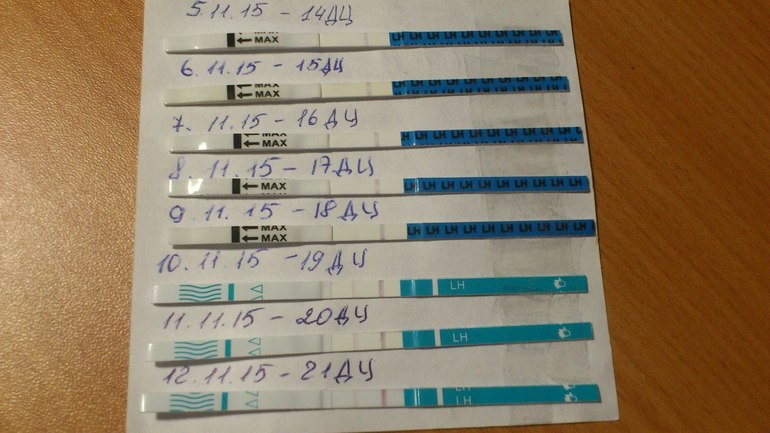 5.11.15 - 14ДЦ
← MAX LH LH LH LH LH LH LH LH LH
6.11.15 - 15ДЦ
MAX
← MAX LH LH LH LH LH LH LH LH LH
7.11.15 - 16ДЦ
MAX
← MAX LH LH LH LH LH LH LH LH LH
8.11.15 - 17ДЦ
← MAX LH LH LH LH LH LH LH LH LH
9.11.15 - 18ДЦ
MAX
← MAX LH LH LH LH LH LH LH LH LH LH
10.11.15 - 19ДЦ
LH
11.11.15 - 20ДЦ
LH
12.11.15 - 21ДЦ
LH